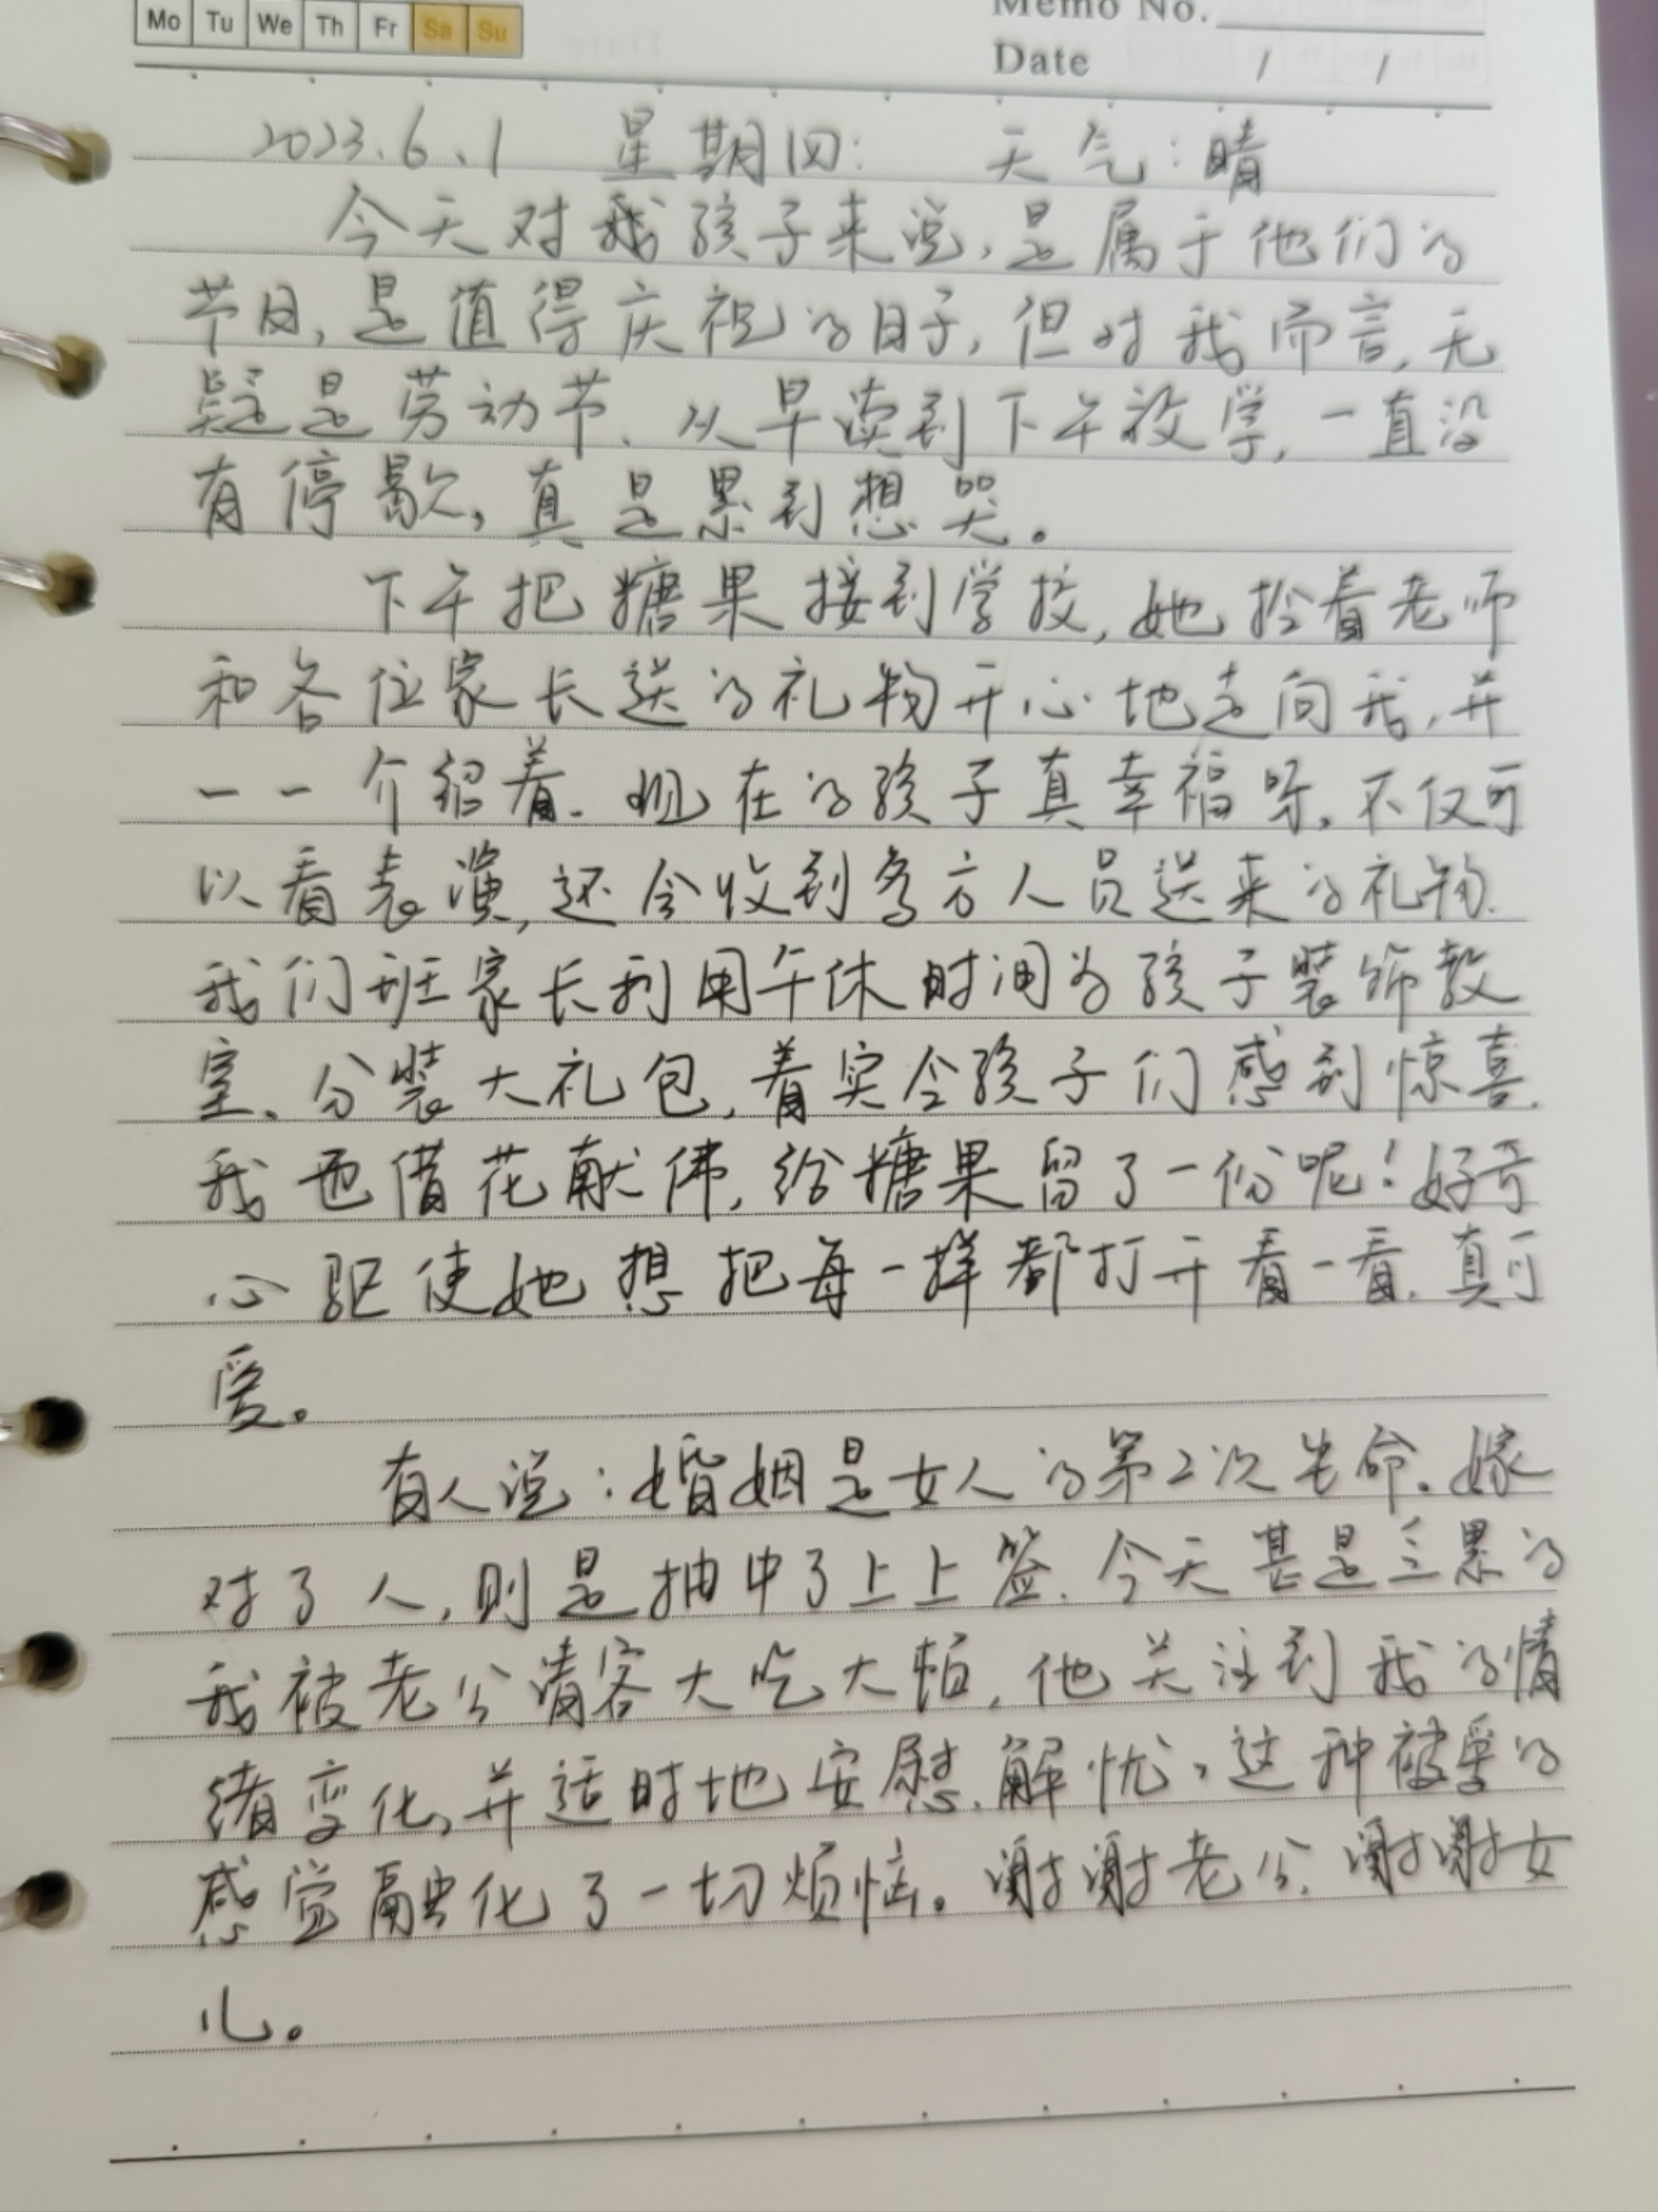 Mo Tu We Th Fr Sa Su
Memo No.
Date / /
2023.6.1 星期四: 天气:晴
今天对我孩子来说,是属于他们的
节日,是值得庆祝的日子,但对我而言,无
疑是劳动节、从早读到下午放学,一直没
有停歇,真是累到想哭。
下午把糖果接到学校,她拎着老师
和各位家长送的礼物开心地走向我,并
一一介绍着.现在的孩子真幸福呀,不仅可
以看表演,还会收到多方人员送来的礼物.
我们班家长利用午休时间为孩子装饰教
室、分装大礼包,着实令孩子们感到惊喜.
我也借花献佛,给糖果留了一份呢!好奇
心驱使她想把每一样都打开看一看.真可
爱。
有人说:婚姻是女人的第2次生命。嫁
对了人,则是抽中了上上签.今天甚是疲累的
我被老公请客大吃大喝,他关注到我的情
绪变化,并适时地安慰.解忧,这种被爱的
感觉融化了一切烦恼。谢谢老公,谢谢女
儿。